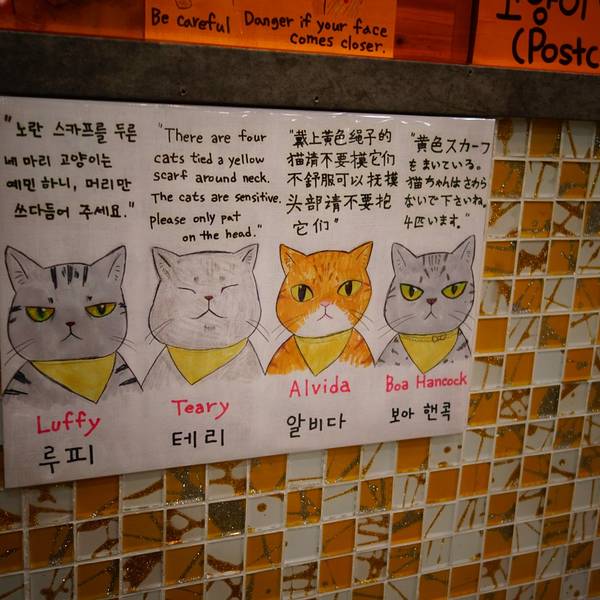 Be careful
Danger if your face
comes closer.
(Postc
"노란 스카프를 두른
네 마리 고양이는
예민 하니, 머리만
쓰다듬어 주세요."
"There are four
cats tied a yellow
scarf around neck.
The cats are sensitive.
please only pat
on the head."
"戴上黄色绳子的
猫请不要摸它们
不舒服可以抚摸
头部请不要抱
它们"
"黄色スカーフ
をまいている。
猫ちゃんはさわら
ないで下さいね。
4匹います。"
Luffy
루피
Teary
테리
Alvida
알비다
Boa Hancock
보아 핸콕